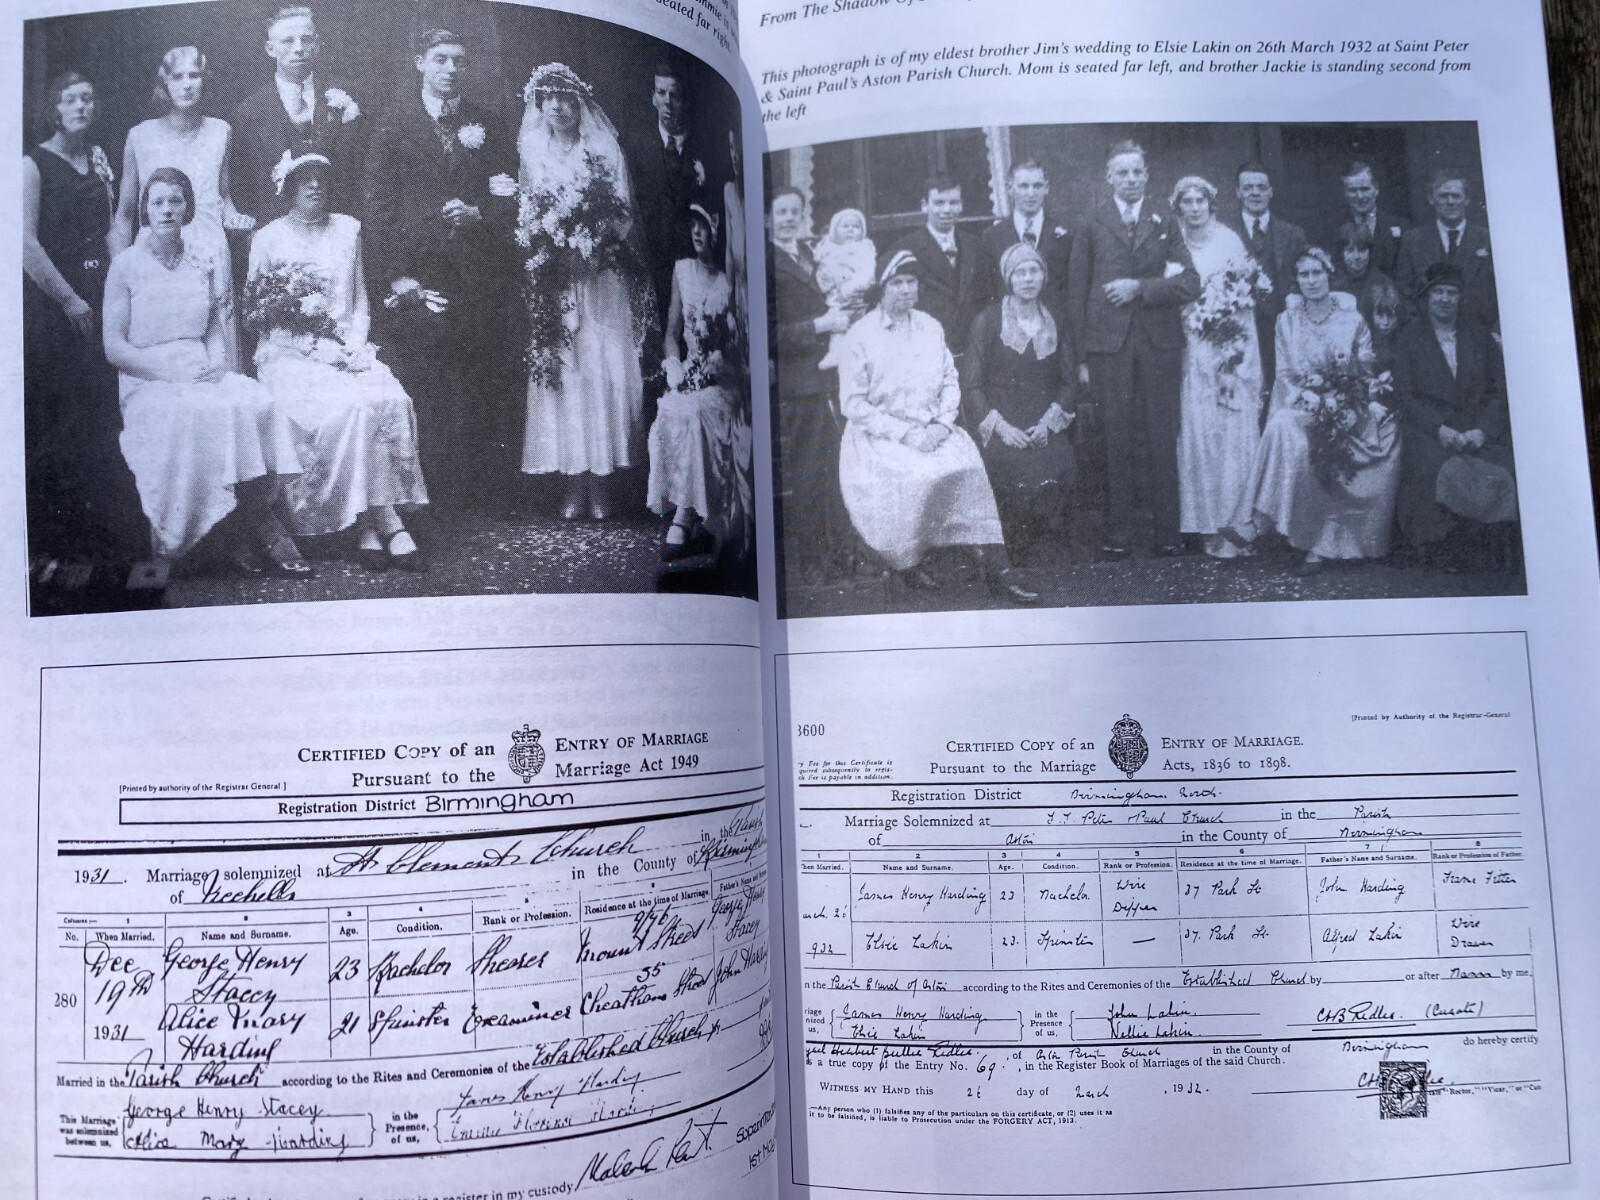 seated far right.
CERTIFIED COPY of an ENTRY OF MARRIAGE
Pursuant to the Marriage Act 1949
[Printed by authority of the Registrar General.]
Registration District Birmingham
1931. Marriage solemnized at St Clements Church in the Parish
of Nechells in the County of Birmingham
Columns:— 1 2 3 4 5 6
No. When Married. Name and Surname. Age. Condition. Rank or Profession. Residence at the time of Marriage. Father's Name and
280 Dec 19th 1931 George Henry Stacey 23 Bachelor Shearer Mount Street George Henry Stacey
Alice Mary Harding 21 Spinster Examiner 55 Cheatham Street John
Married in the Parish Church according to the Rites and Ceremonies of the Established Church
This Marriage was solemnized between us, George Henry Stacey in the Presence of us, James Henry Harding
Alice Mary Harding
register in my custody
From The Shadow
This photograph is of my eldest brother Jim's wedding to Elsie Lakin on 26th March 1932 at Saint Peter
& Saint Paul's Aston Parish Church. Mom is seated far left, and brother Jackie is standing second from
the left
3600
[Printed by Authority of the Registrar-General
CERTIFIED COPY of an ENTRY OF MARRIAGE.
Pursuant to the Marriage Acts, 1836 to 1898.
Fee for this Certificate is
quired subsequently to regis-
Fee is payable in addition.
Registration District Birmingham North.
Marriage Solemnized at SS Peter & Paul Church in the Parish
of Aston in the County of Birmingham
1 2 3 4 5 6 7 8
Married. Name and Surname. Age. Condition. Rank or Profession. Residence at the time of Marriage. Father's Name and Surname. Rank or Profession of Father.
arch 26 James Henry Harding 23 Bachelor Wire Dipper 37 Park St. John Harding Frame Fitter
932 Elsie Lakin 23. Spinster — 37. Park St. Alfred Lakin Wire Drawer
n the Parish Church of Aston according to the Rites and Ceremonies of the Established Church by or after Banns by me,
James Henry Harding in the Presence of us, John Lakin. C H B Ridler. (Curate)
Elsie Lakin Nellie Lakin
of Aston Parish Church in the County of Birmingham do hereby certify
is a true copy of the Entry No. 69, in the Register Book of Marriages of the said Church.
WITNESS MY HAND this 26 day of March, 1932.
"Rector," "Vicar," or "Cur
—Any person who (1) falsifies any of the particulars on this certificate, or (2) uses it as
it to be falsified, is liable to Prosecution under the FORGERY ACT, 1913.